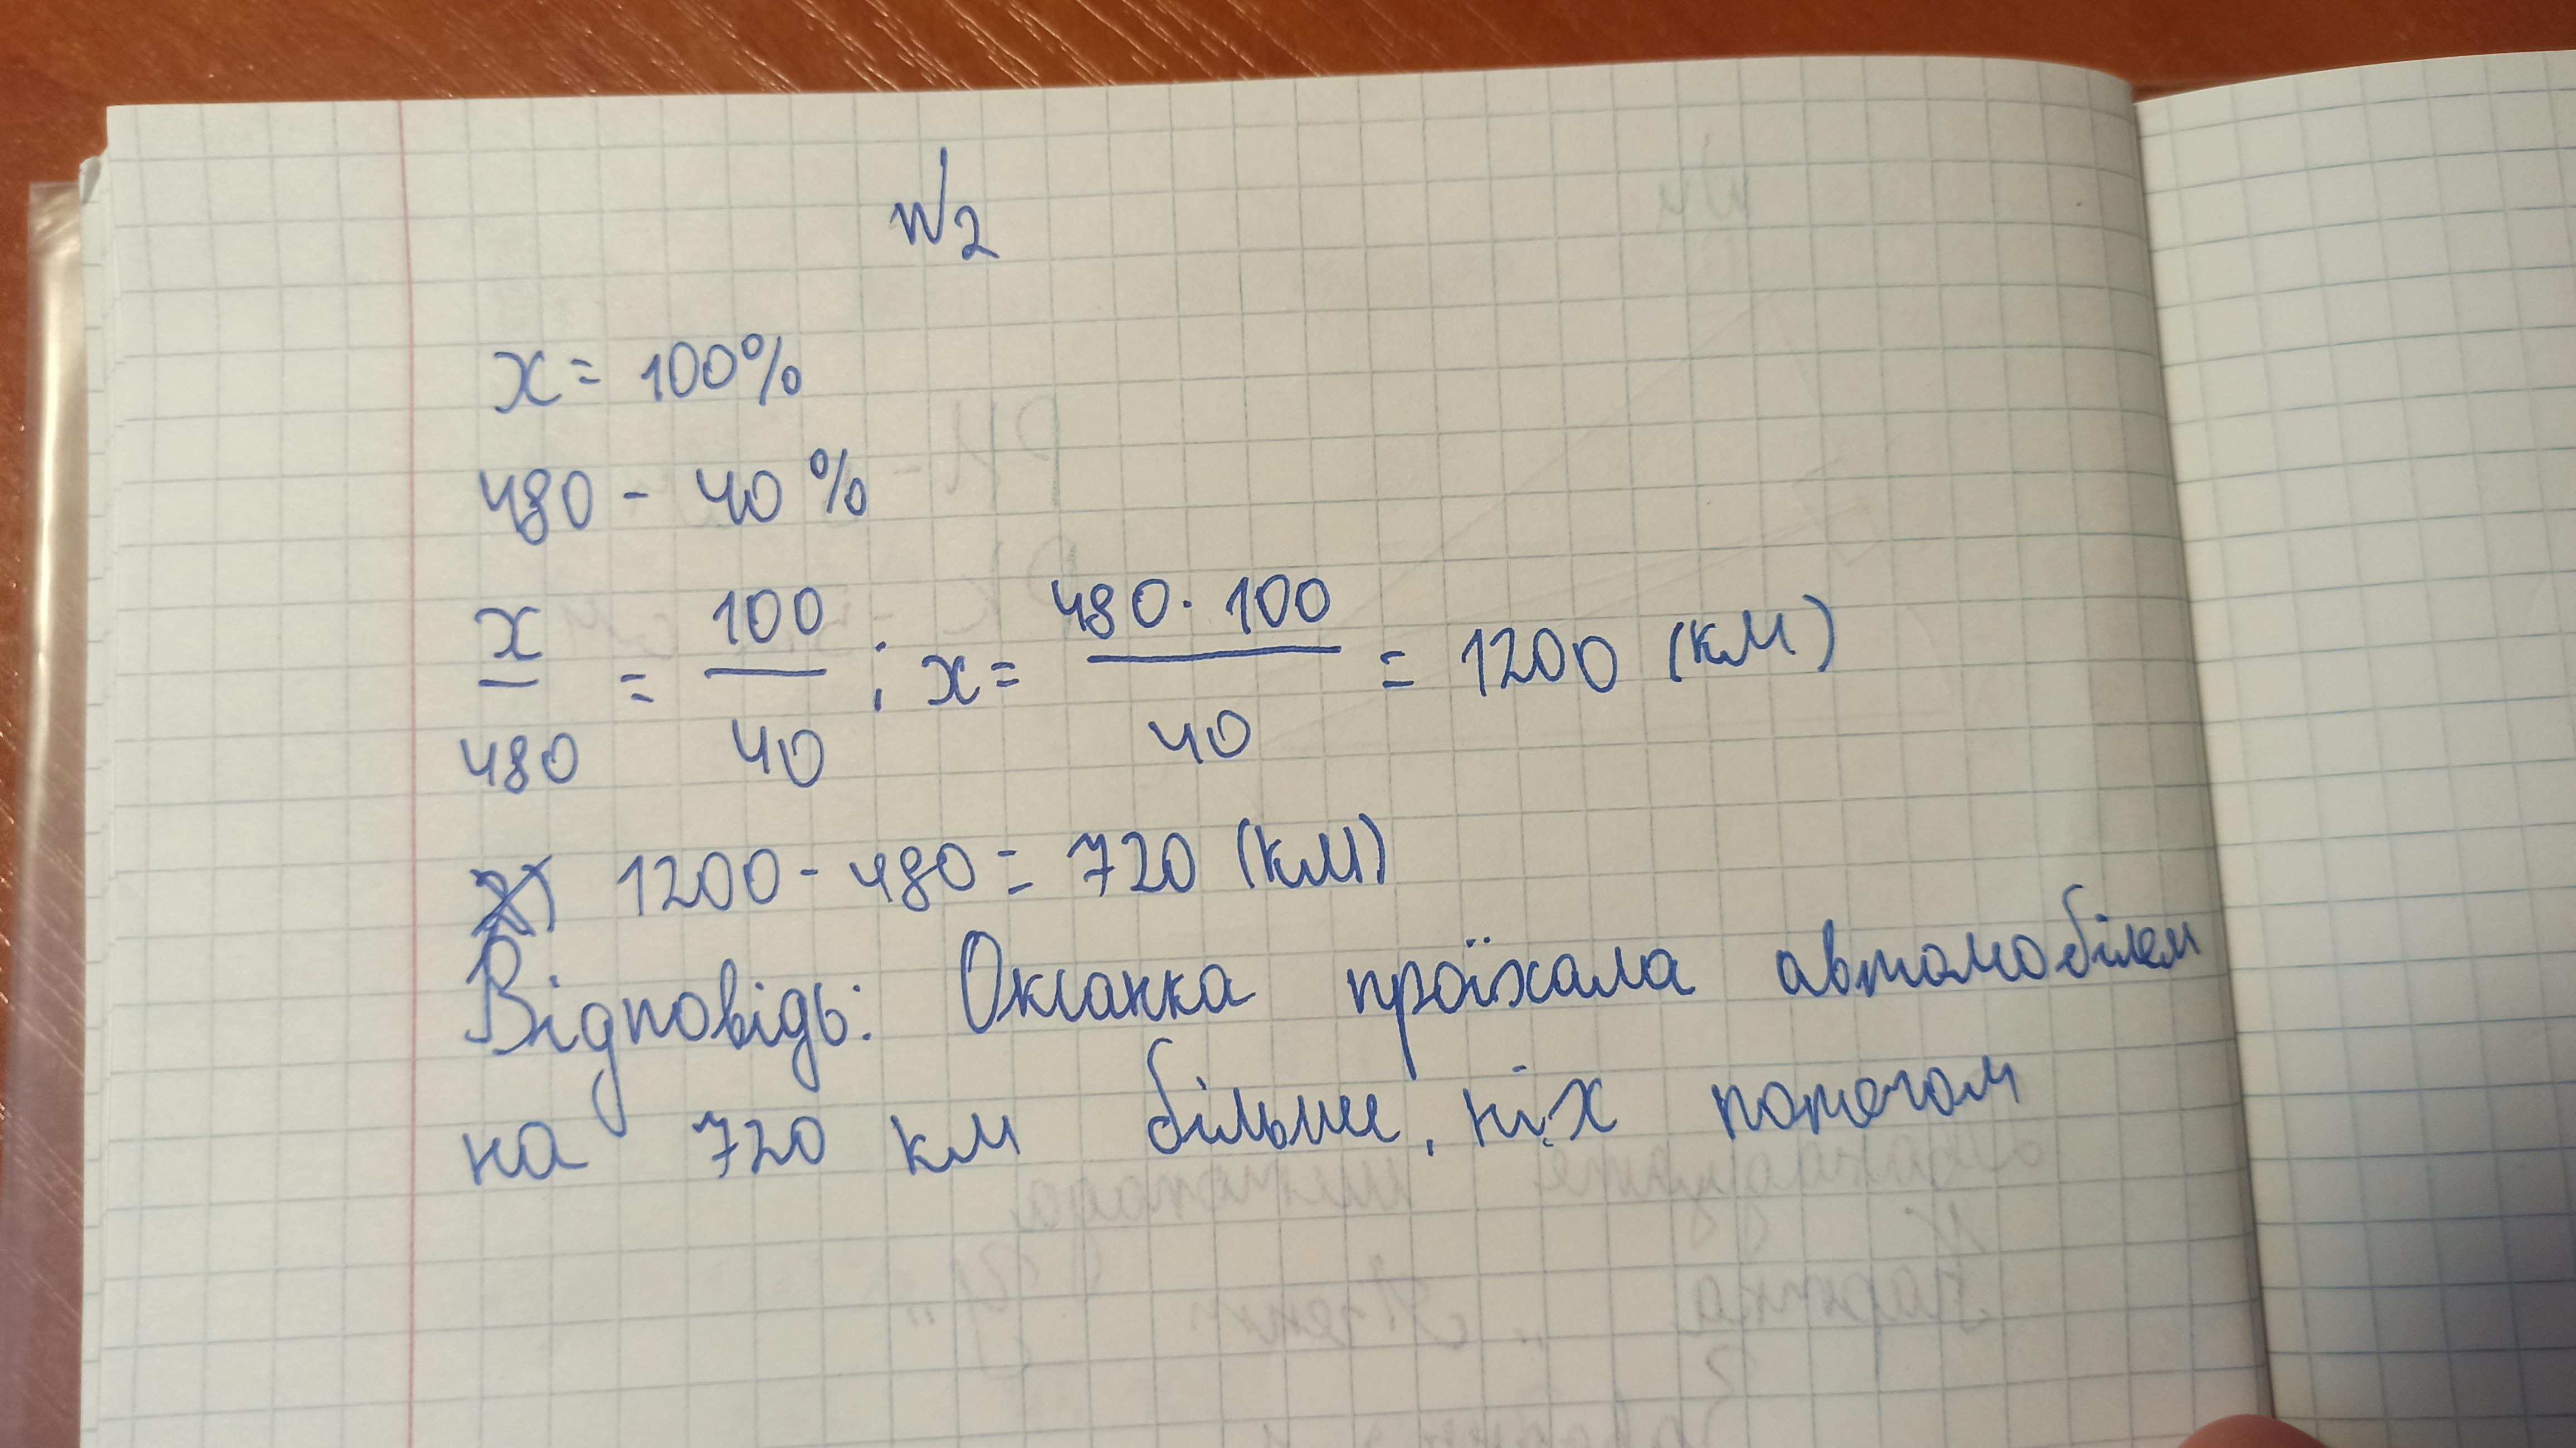 №2
x = 100%
480 - 40%
x/480 = 100/40 ; x = 480·100/40 = 1200 (км)
1200 - 480 = 720 (км)
Відповідь: Оксанка проїхала автомобілем
на 720 км більше, ніх потягом